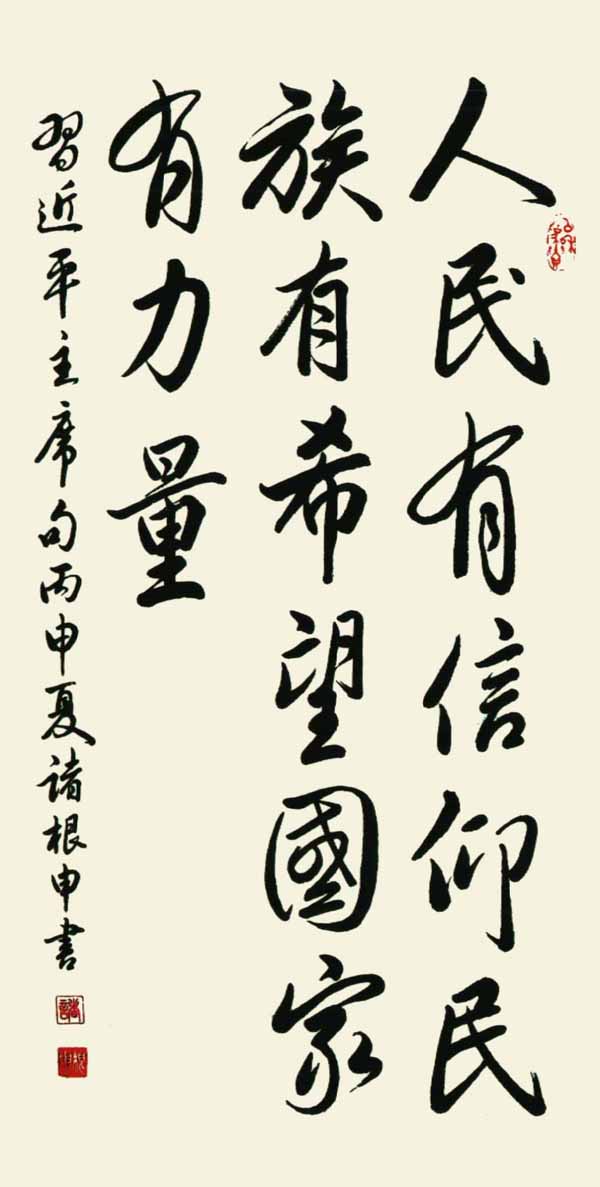 人民有信仰民
族有希望國家
有力量
習近平主席句丙申夏諸根申書